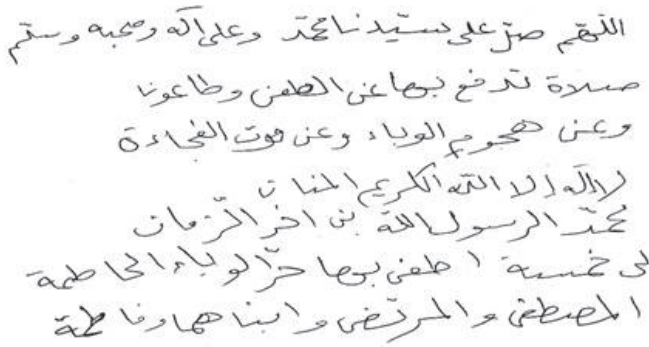 اللهم صل على سيدنا محمد وعلى آله وصحبه وسلم
صلاة تدفع بها عن الطعن وطاعونا
وعن هجوم الوباء وعن موت الفجاءة
لا إله إلا الله الكريم المنان
محمد الرسول الله بن اخر الزمان
لى خمسة اطفى بها حر الوباء الحاطمة
المصطفى والمرتضى وابناهما وفاطمة